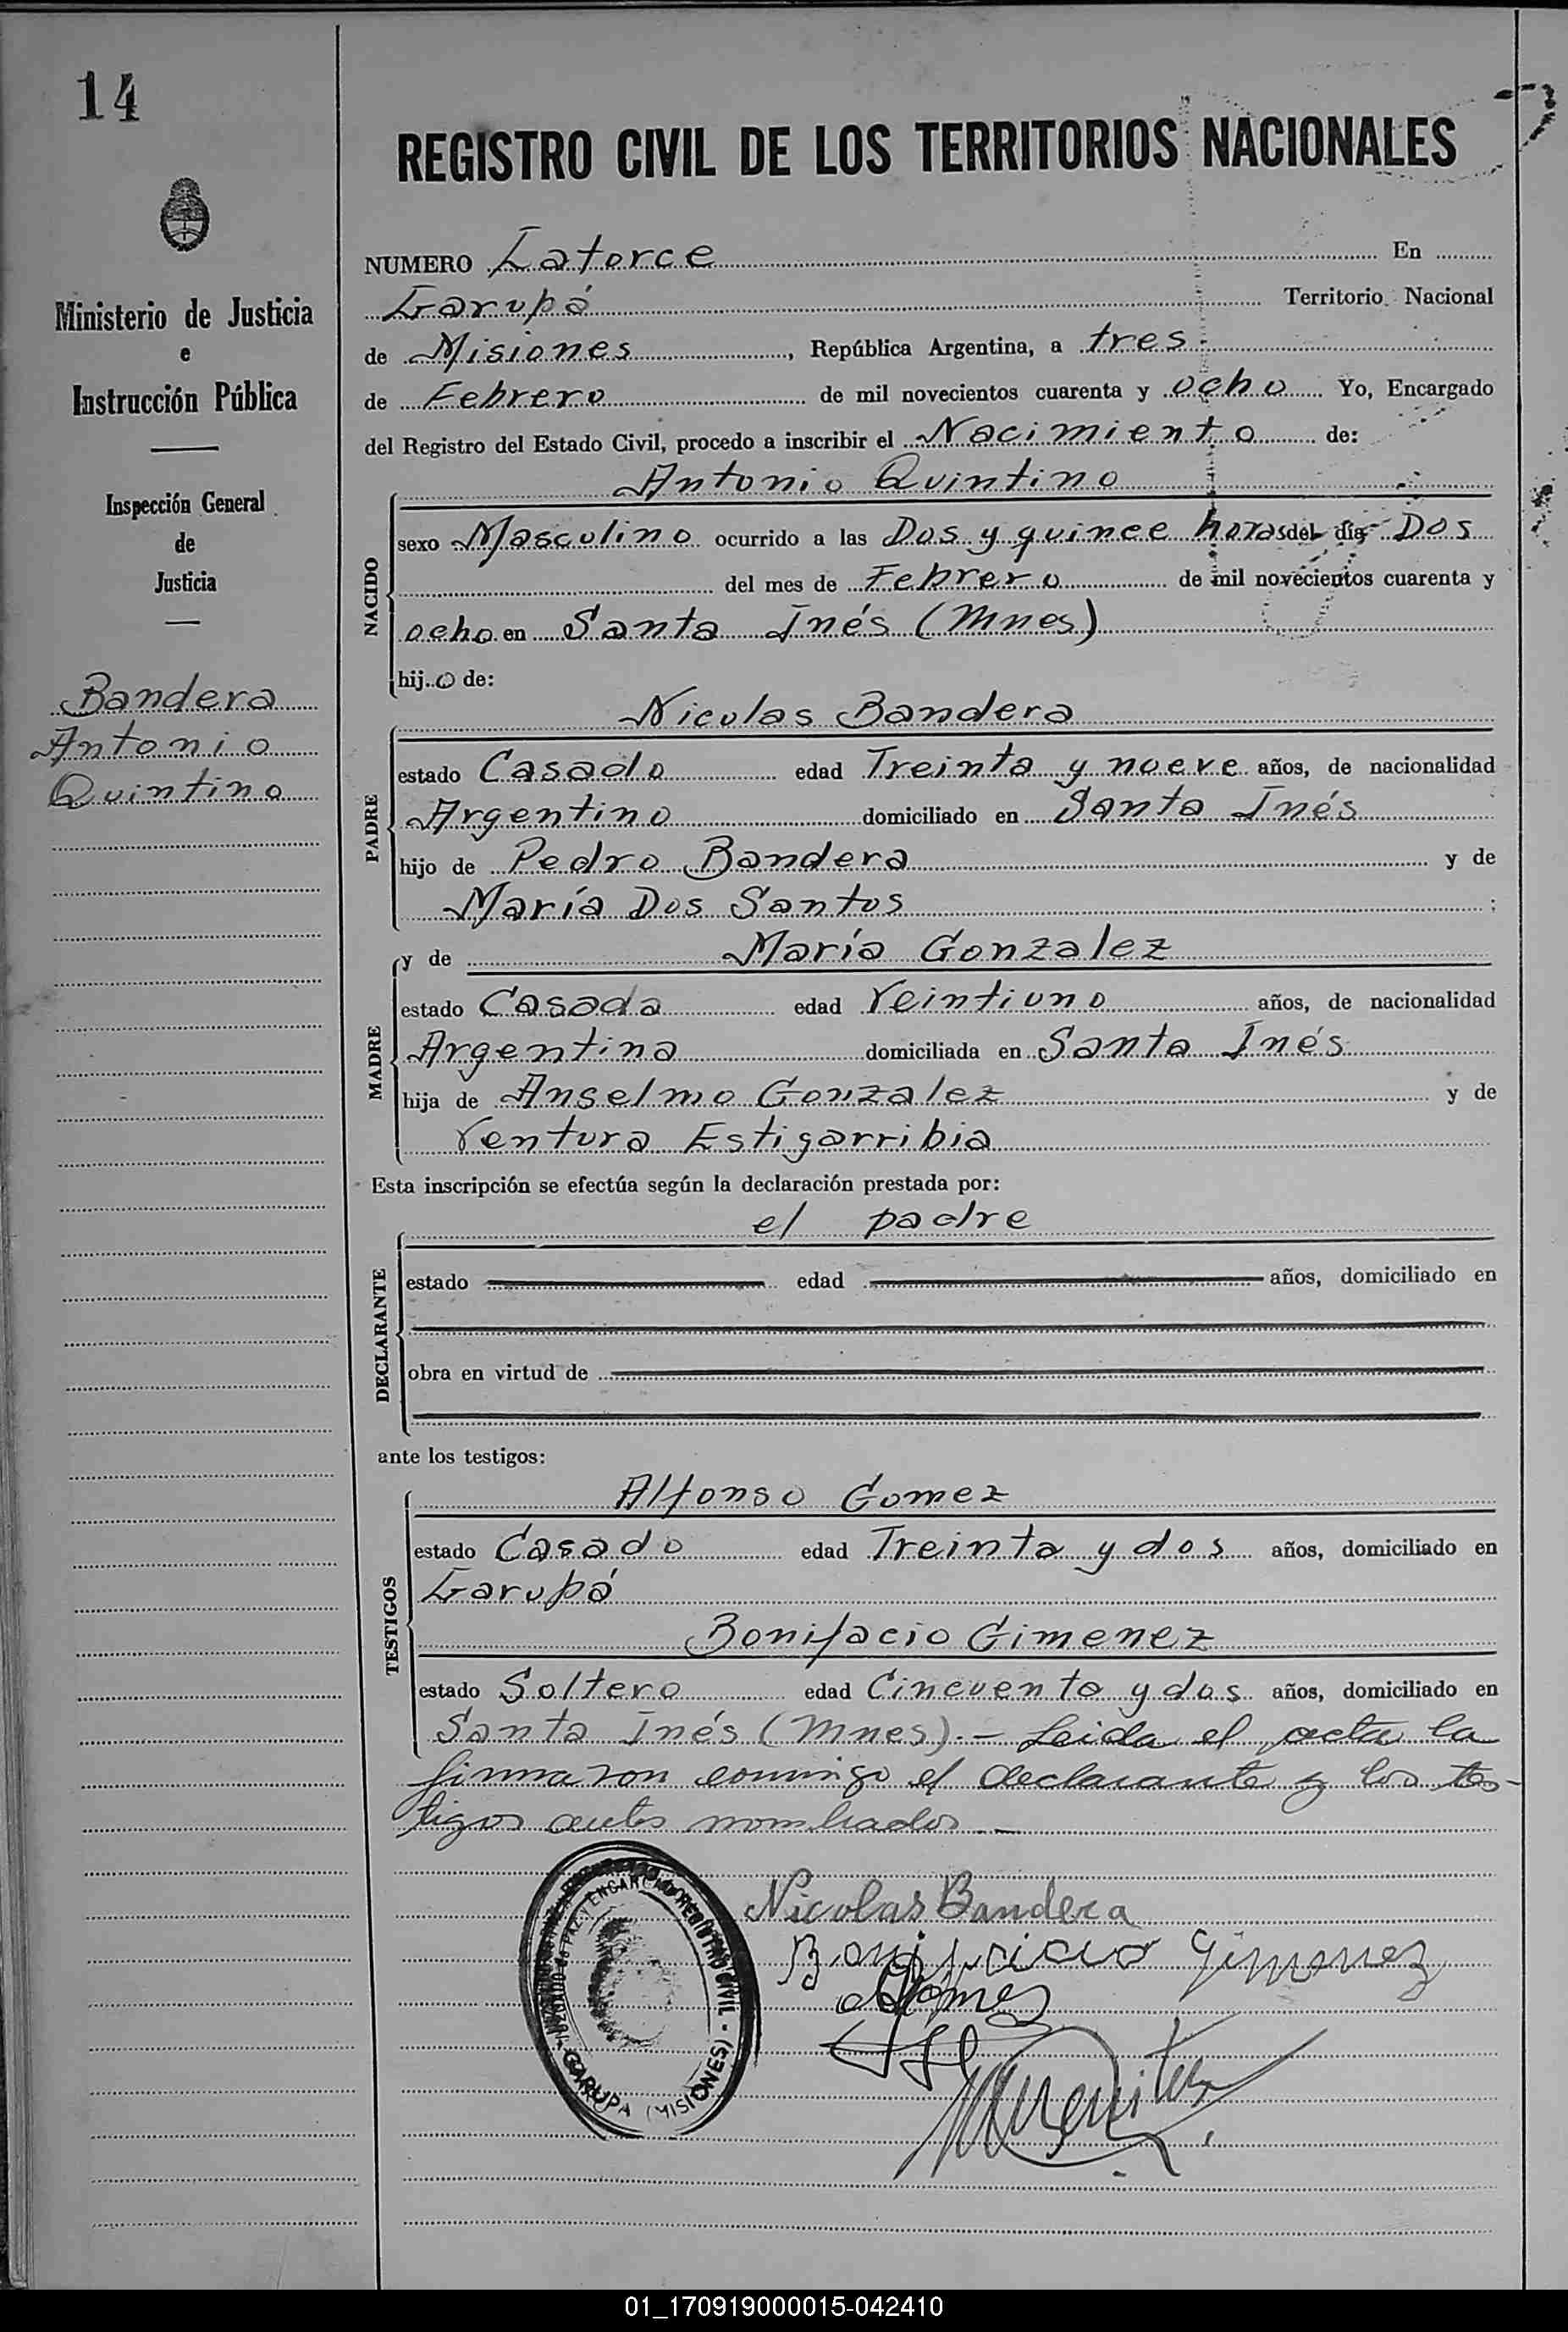 14
REGISTRO CIVIL DE LOS TERRITORIOS NACIONALES
Ministerio de Justicia
e
Instrucción Pública
Inspección General
de
Justicia
Bandera
Antonio
Quintino
NUMERO Catorce En
Garupá Territorio Nacional
de Misiones, República Argentina, a tres
de Febrero de mil novecientos cuarenta y ocho Yo, Encargado
del Registro del Estado Civil, procedo a inscribir el Nacimiento de:
NACIDO
Antonio Quintino
sexo Masculino ocurrido a las Dos y quince horas del día Dos
del mes de Febrero de mil novecientos cuarenta y
ocho en Santa Inés (Mnes)
hijo de:
PADRE
Nicolas Bandera
estado Casado edad Treinta y nueve años, de nacionalidad
Argentino domiciliado en Santa Inés
hijo de Pedro Bandera y de
María Dos Santos ;
MADRE
y de María Gonzalez
estado Casada edad Veintiuno años, de nacionalidad
Argentina domiciliada en Santa Inés
hija de Anselmo Gonzalez y de
Ventura Estigarribia
Esta inscripción se efectúa según la declaración prestada por:
DECLARANTE
el padre
estado edad años, domiciliado en
obra en virtud de
ante los testigos:
TESTIGOS
Alfonso Gomez
estado Casado edad Treinta y dos años, domiciliado en
Garupá
Bonifacio Gimenez
estado Soltero edad Cincuenta y dos años, domiciliado en
Santa Inés (Mnes).- Leida el acta la
firmaron conmigo el declarante y los tes-
tigos antes nombrados.-
Nicolas Bandera
Bonifacio Gimenez
Gómez
REGISTRO CIVIL - GARUPA (MISIONES)
01_170919000015-042410